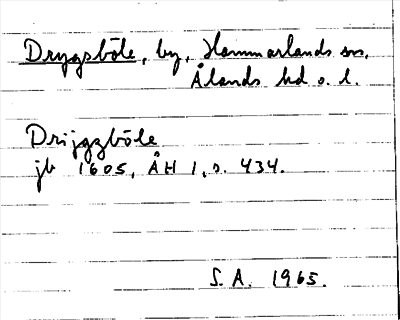 Dryggsböle, by, Hammarlands sn,
Ålands hd o. l.
Drijgzböle
jb 1605, ÅH 1, s. 434.
S. A. 1965.